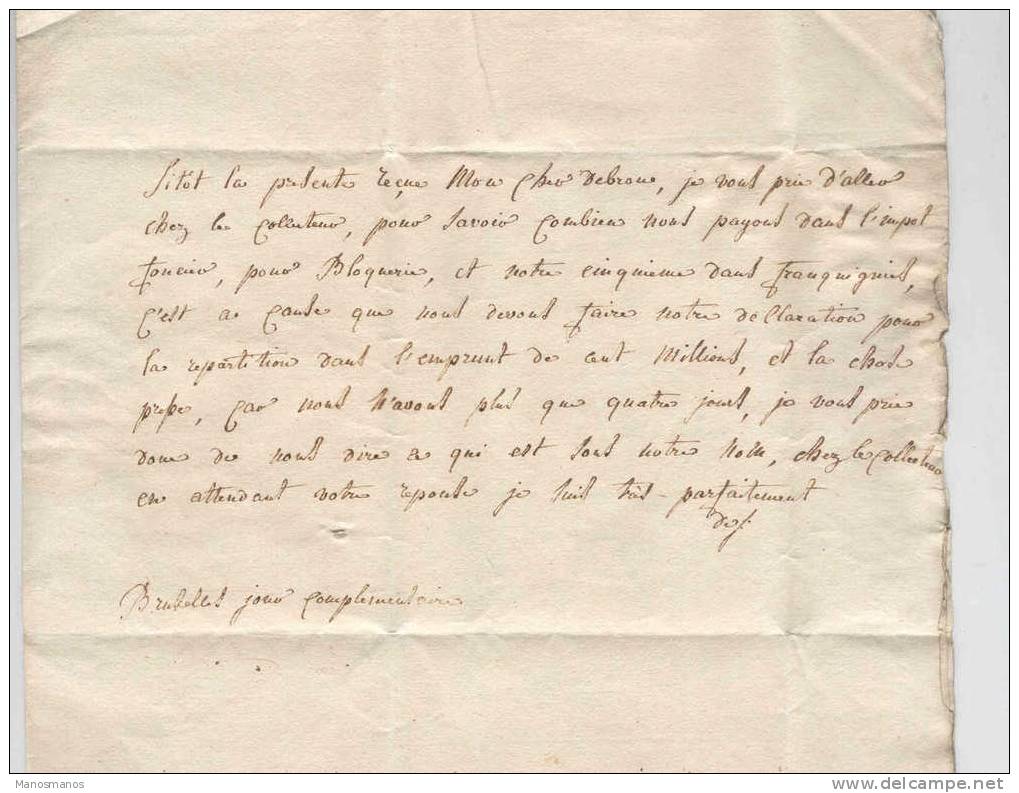 Sitôt la presente reçue Mon Cher Debroue, je vous prie d'aller
chez le Collecteur, pour savoir Combien nous payons dans l'impot
foncier, pour Bloquerie, et notre cinquieme dans franquignies,
C'est a Cause que nous devons faire notre declaration pour
la repartition dans l'emprunt de cent Millions, et la chose
presse, Car nous n'avons plus que quatre jours, je vous prie
donc de nous dire a qui est sous notre Nom, chez le Collecteur
en attendant votre reponse je suis très-parfaitement
Bruxelles jour Complementaire
Manosmanos
www.delcampe.net